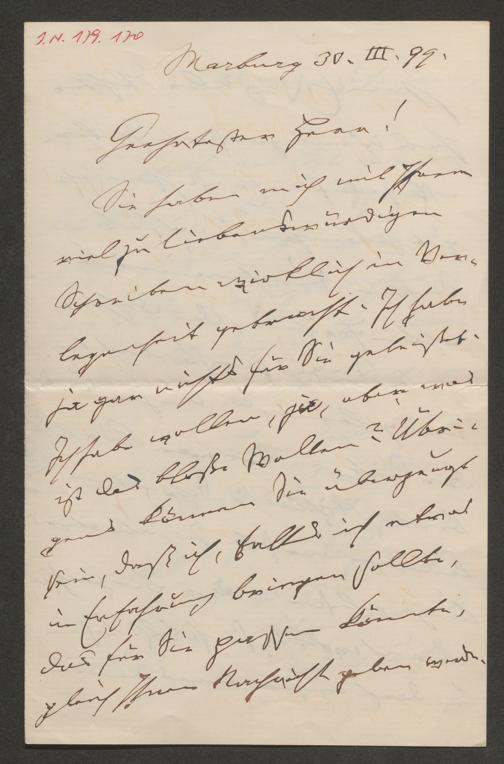 I.N. 179.170
Marburg 30. III. 99.
Geehrtester Herr!
Sie haben mich mit Ihrem
viel zu liebenswürdigen
Schreiben wirklich in Ver-
legenheit gebracht. Ich habe
ja gar nichts für Sie geleistet.
Ich habe wollen, ja, aber was
ist das bloße Wollen? Übri-
gens können Sie überzeugt
sein, daß ich, falls ich etwas
in Erfahrung bringen sollte,
das für Sie passen könnte,
gleich Ihnen Nachricht geben werde.